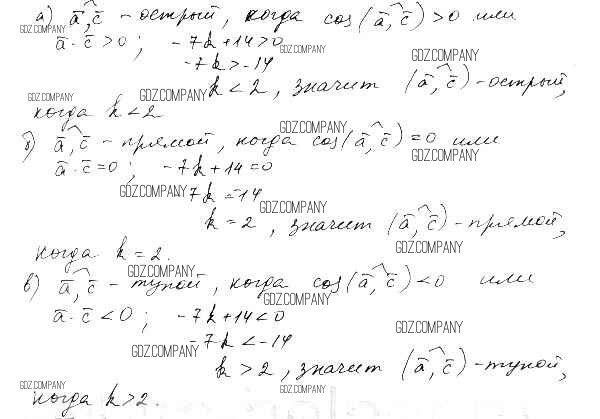 а) a̅,c̅ - острый, когда cos(a̅,c̅)>0 или
GDZ.COMPANY
a̅·c̅>0; -7k+14>0
GDZ.COMPANY
-7k>-14
GDZ.COMPANY
k<2, значит (a̅,c̅)-острый,
GDZ.COMPANY GDZ.COMPANY
когда k<2
GDZ.COMPANY
б) a̅,c̅ - прямой, когда cos(a̅,c̅)=0 или
GDZ.COMPANY
a̅·c̅=0; -7k+14=0
GDZ.COMPANY
-7k=-14
GDZ.COMPANY
k=2, значит (a̅,c̅)-прямой,
GDZ.COMPANY
когда k=2.
GDZ.COMPANY
в) a̅,c̅ - тупой, когда cos(a̅,c̅)<0 или
GDZ.COMPANY
a̅·c̅<0; -7k+14<0
GDZ.COMPANY
-7k<-14
GDZ.COMPANY
k>2, значит (a̅,c̅)-тупой,
GDZ.COMPANY GDZ.COMPANY
когда k>2.